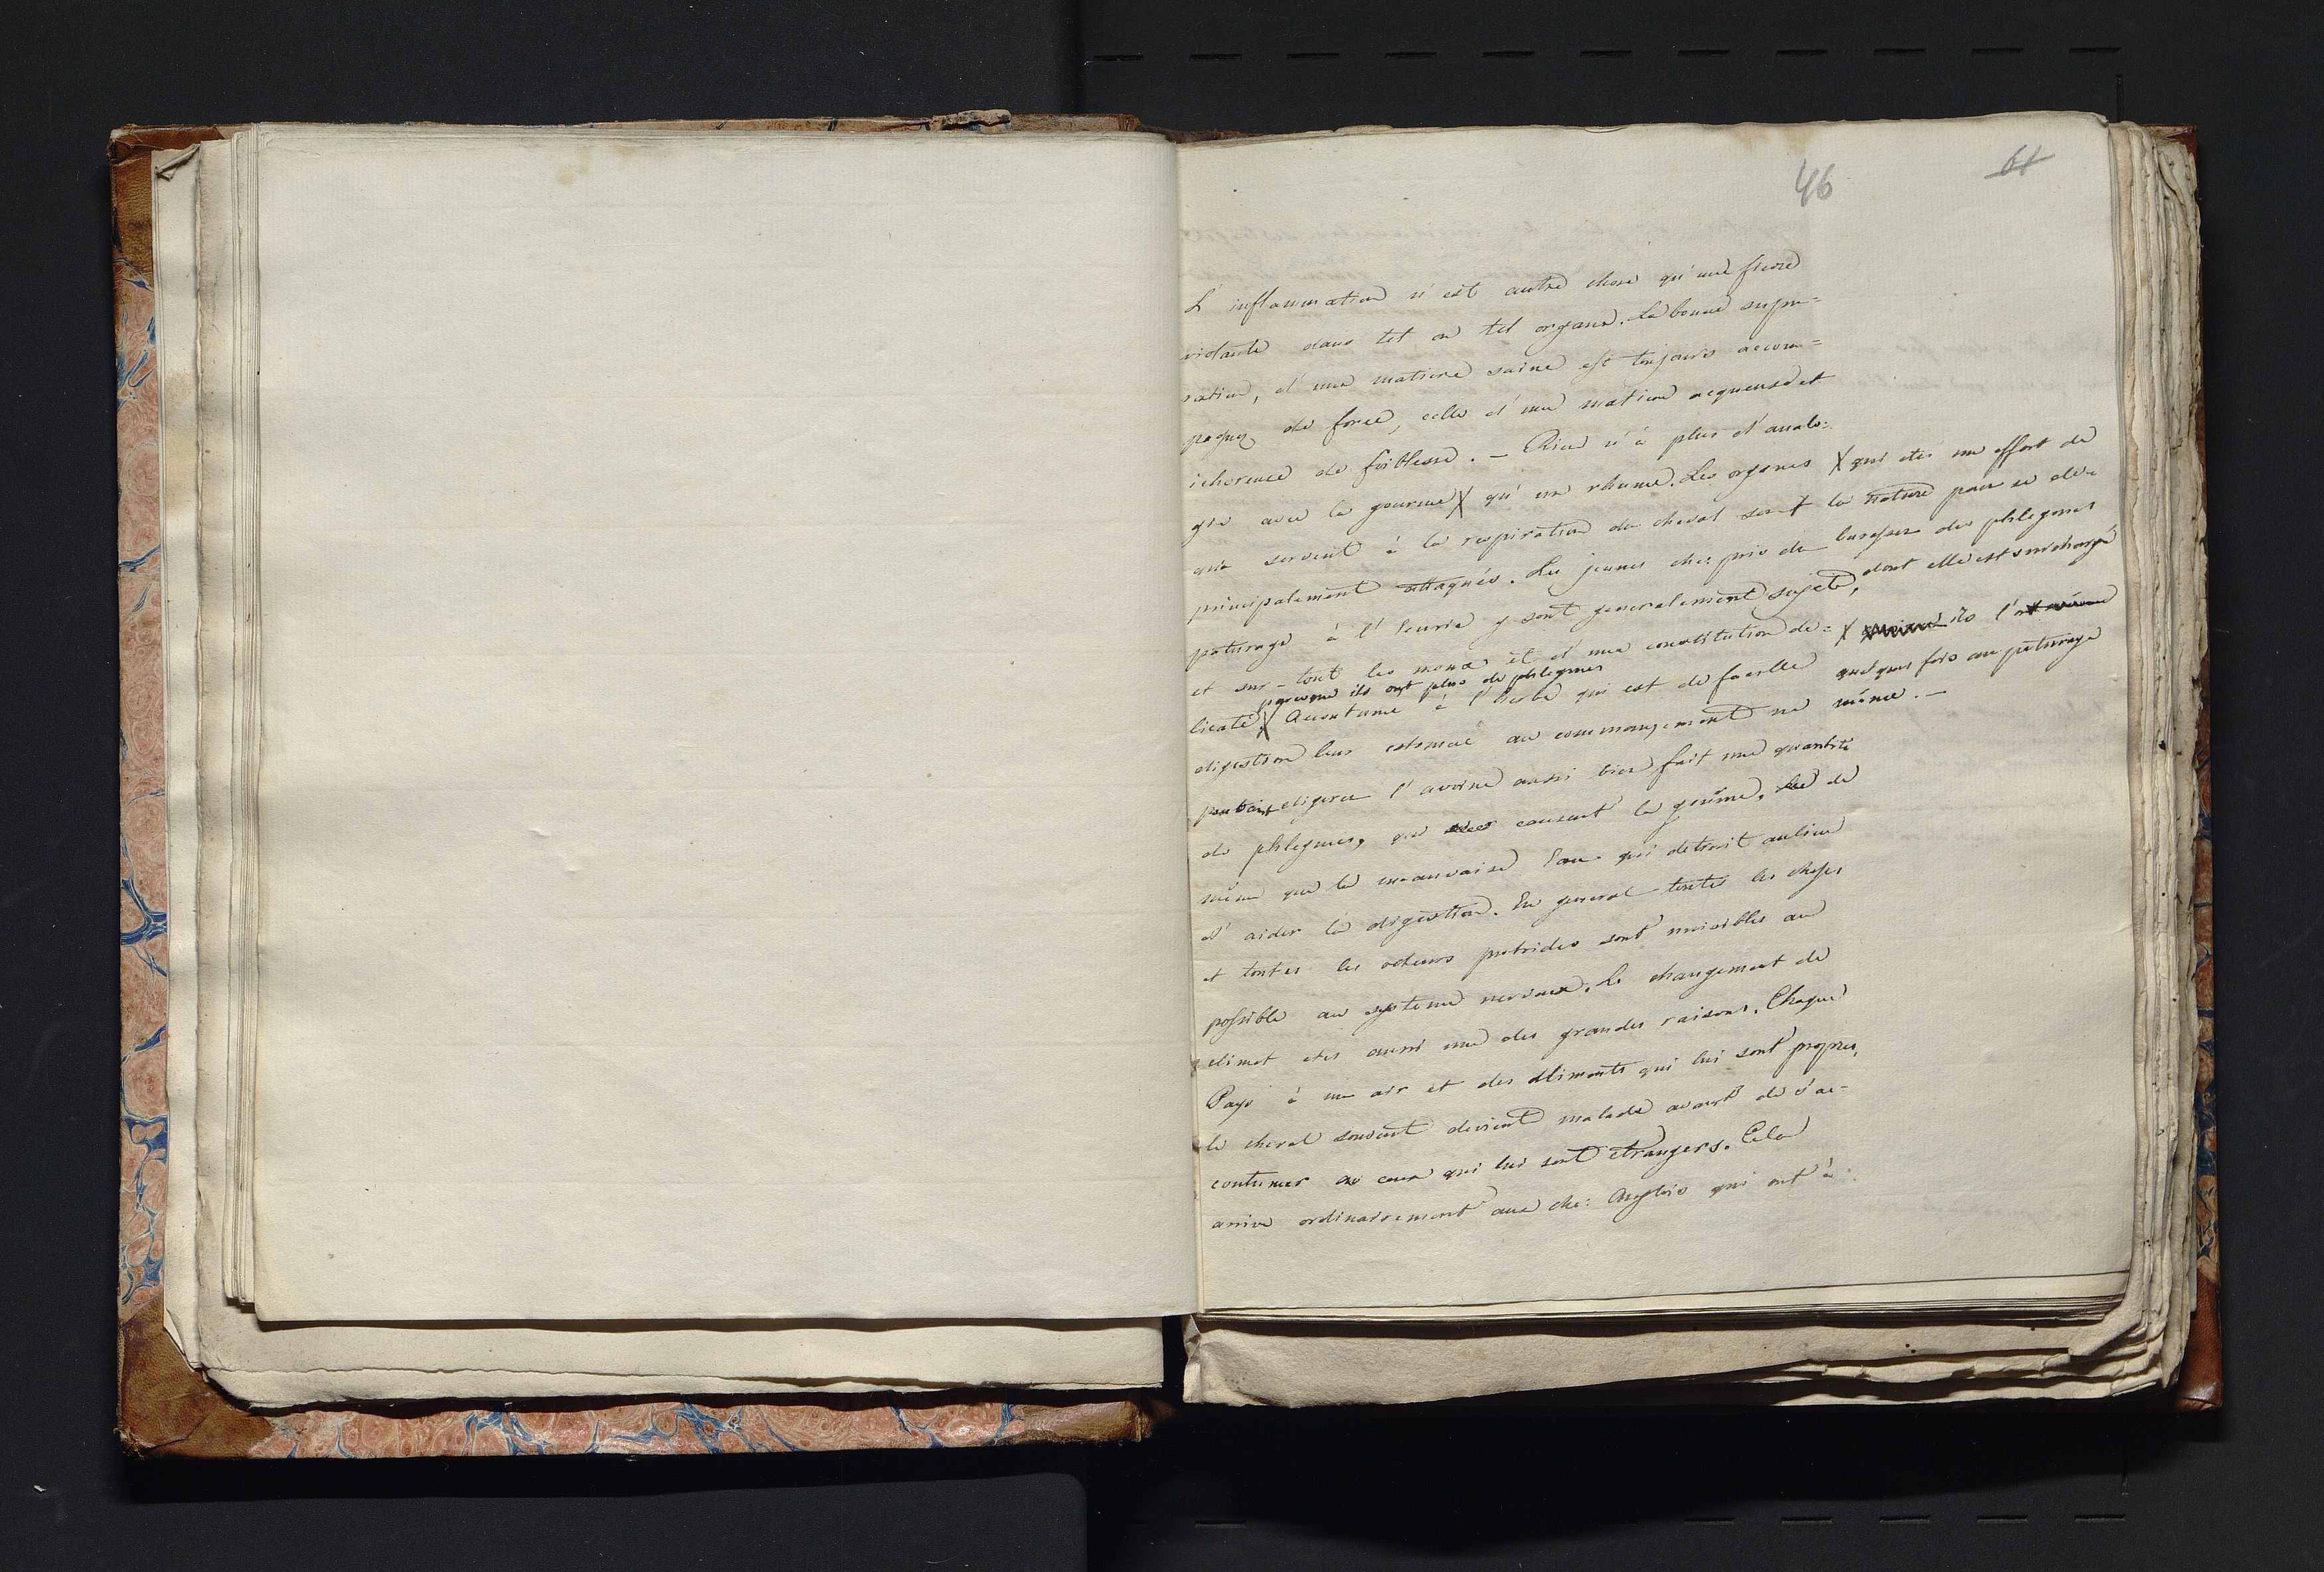 46
61
L'inflammation n'est autre chose qu'une fievre
violante dans tel ou tel organe. La bonne supu=
ration, d'une matiere saine est toujours accom=
pagnez de force, celle d'une matiere acqueuse et
ichoreuse de foiblesse. — Rien n'à plus d'analo=
gie avec la gourme X qu'un rhume. Les organes
qui servent à la respiration du cheval sont
principalement attaqués. Les jeunes che: pris du
paturage à l'heurie y sont generalement sujets,
et sur-tout les moux et d'une constitution de=
parceque ils ont plus de phlegmes
licate. X Accoutumé à l'herbe qui est de facille
digestion leur estomac au commançement ne
digerer l'avoine aussi bien fait une quantité
de phlegmes, qui causent la goûrme, de
même que la mauvaise eau qui detruit aulieu
d'aider la digestion. En general toutes les choses
et toutes les odeurs putrides sont nuisibles au
possible au systeme nerveux. Le changement de
climat etes aussi une des grandes raisons. Chaque
Pays à un air et des aliments qui lui sont propres,
le cheval souvent devient malade avant de s'ac-
coutumer au ceux qui lui sont etrangers. Cela
arrive ordinairement aux che: Anglois qui ont à
X qui etes un effort de
la nature pour se de=
barasser des phlegmes
dont elle est surchargé
X ils l'ont
quelques fois au paturage
même. —